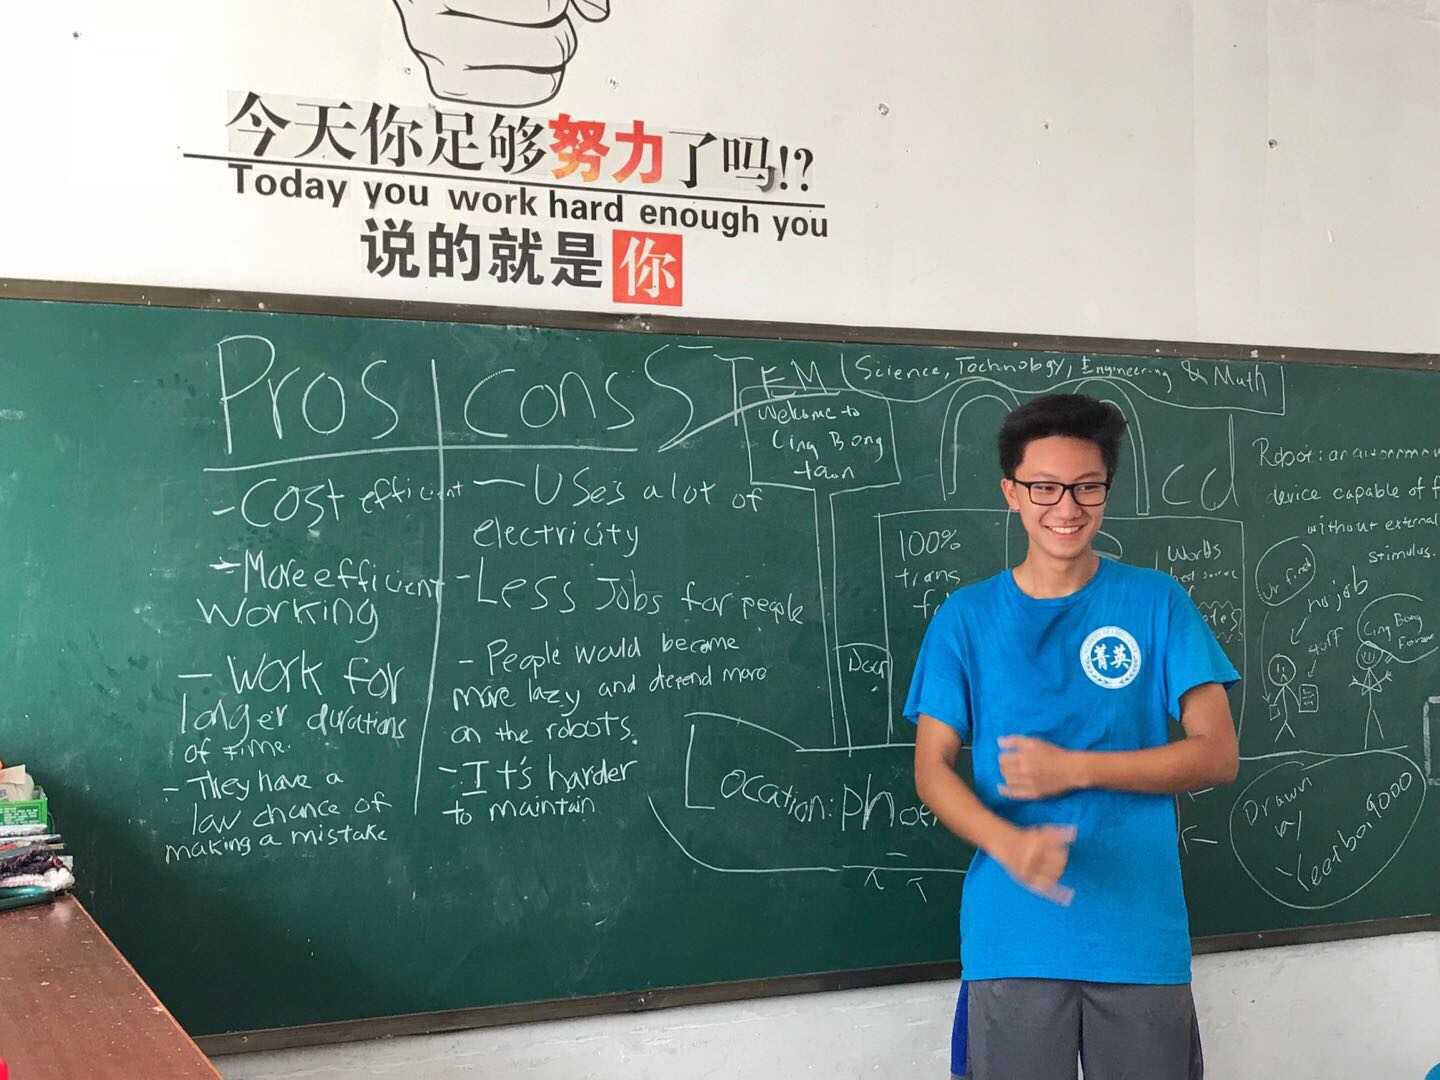 今天你足够努力了吗!?
Today you work hard enough you
说的就是你
Pros
- Cost efficient
- More efficient
working
- Work for
longer durations
of time.
- They have a
low chance of
making a mistake
Cons
- Uses a lot of
electricity
- Less Jobs for people
- People would become
more lazy and depend more
on the robots.
- It's harder
to maintain
STEM
Science, Technology, Engineering & Math
Welcome to
Cing Bong
town
100%
trans
Door
Worlds
best
Location: Phoe
菁英
Robot: an autonomou
device capable of f
without external
stimulus.
Ur fired
no job
stuff
Cing Bong
Drawn
by
Yeerboi9000